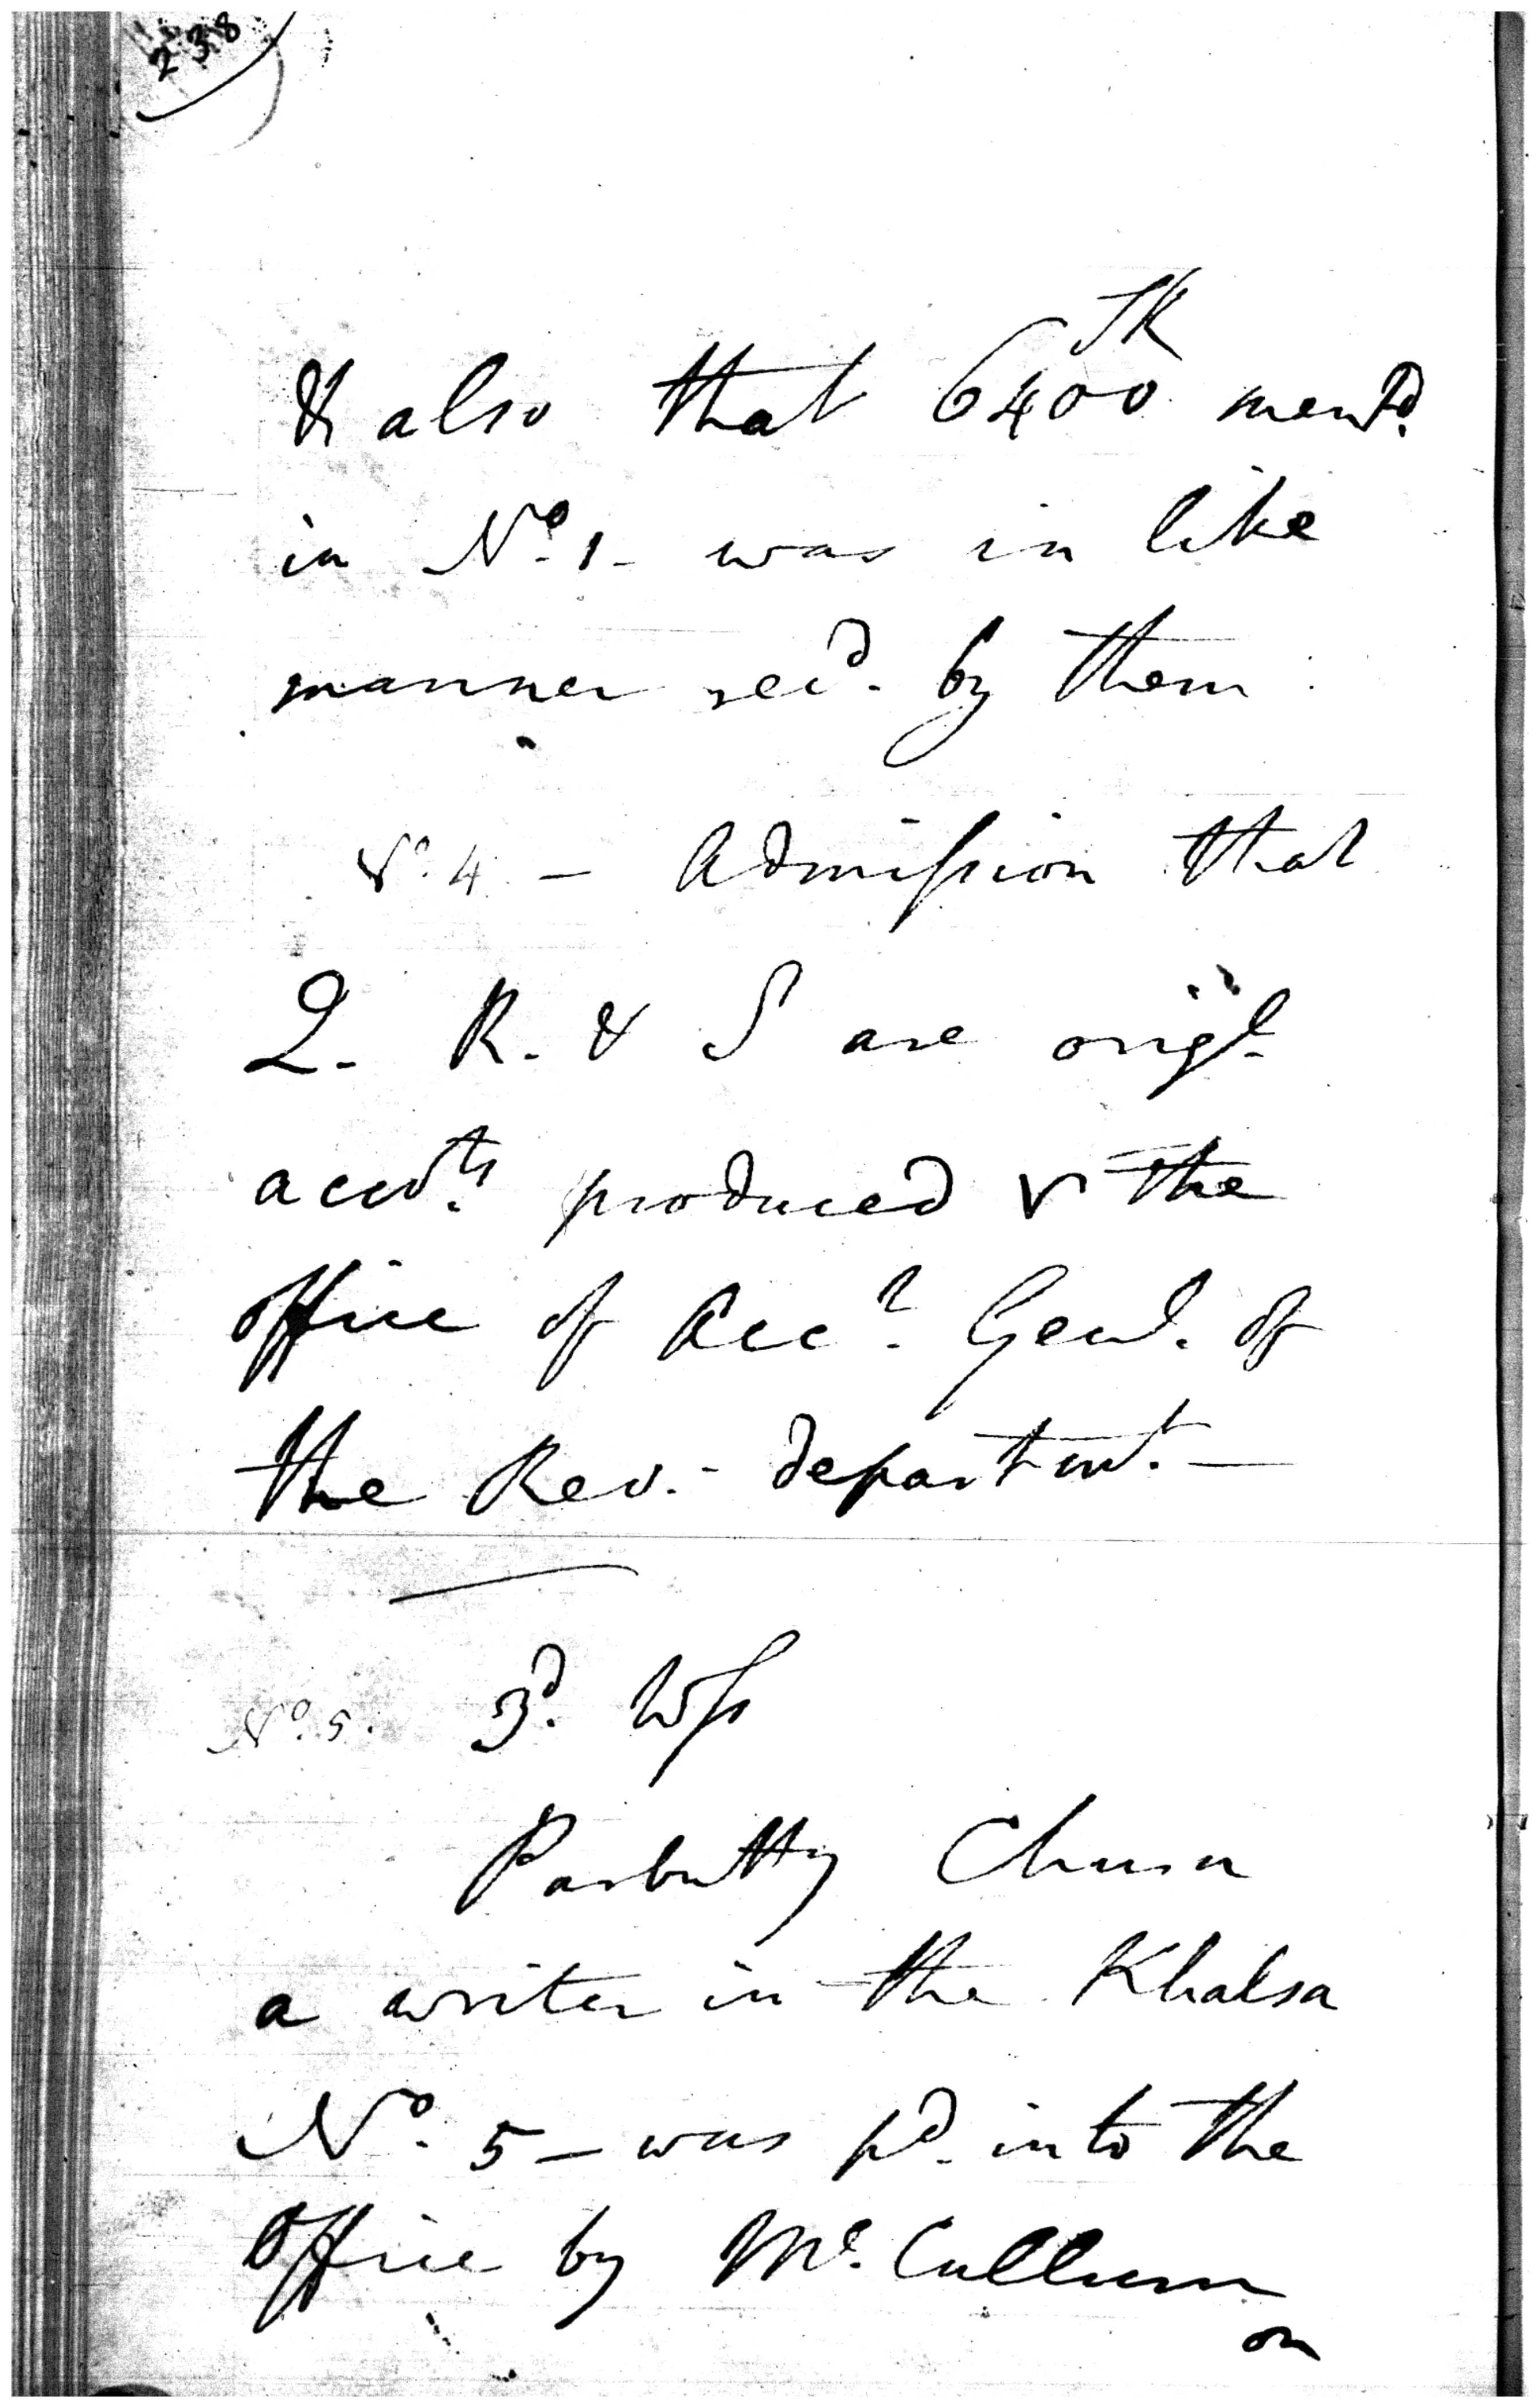 238
SR
& also that 6400 mentd.
in No. 1 - was in like
manner recd. by them
No. 4 - Admission that
Q. R. & S are origl.
accots. produced & the
office of Acct. Genl. of
the Rev. - departmt. -
No. 5. 3d. Wss
Parbutty Churn
a writer in the Khalsa
No. 5 - was pd. into the
Office by Mc. Cullum
on